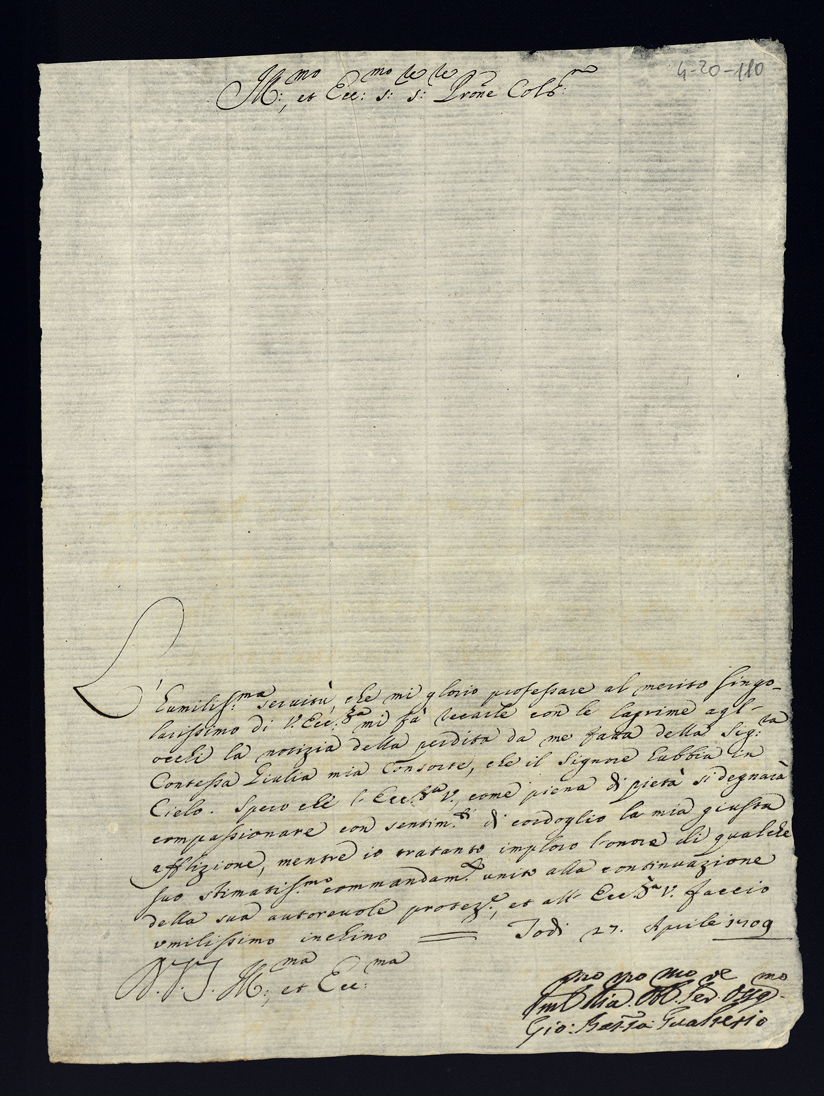 4-20-110
Ill:mo, et Ecc:mo s:re s:re Prone Col:mo
L'humiliss:ma seruitù, che mi glorio professare al merito singo-
larissimo di V. Ecc:za mi fà recarle con le laprime agl'
occhi la notizia della perdita da me fatta della Sig:ra
Contessa Giulia mia Consorte, che il Signore l'abbia in
Cielo. Spero che l'Ecc:za V. come piena di pietà si degnarà
compassionare con sentim:ti di cordoglio la mia giusta
afflizione, mentre io tratanto imploro l'onore di qualche
suo stimatiss:mo commandam:to unito alla continuazione
della sua autoreuole protez:e, et all'Ecc:za V. faccio
vmilissimo inchino = Todi 27. Aprile 1709
D. V. S. Ill:ma, et Ecc:ma
Gio: Batta: Gualterio